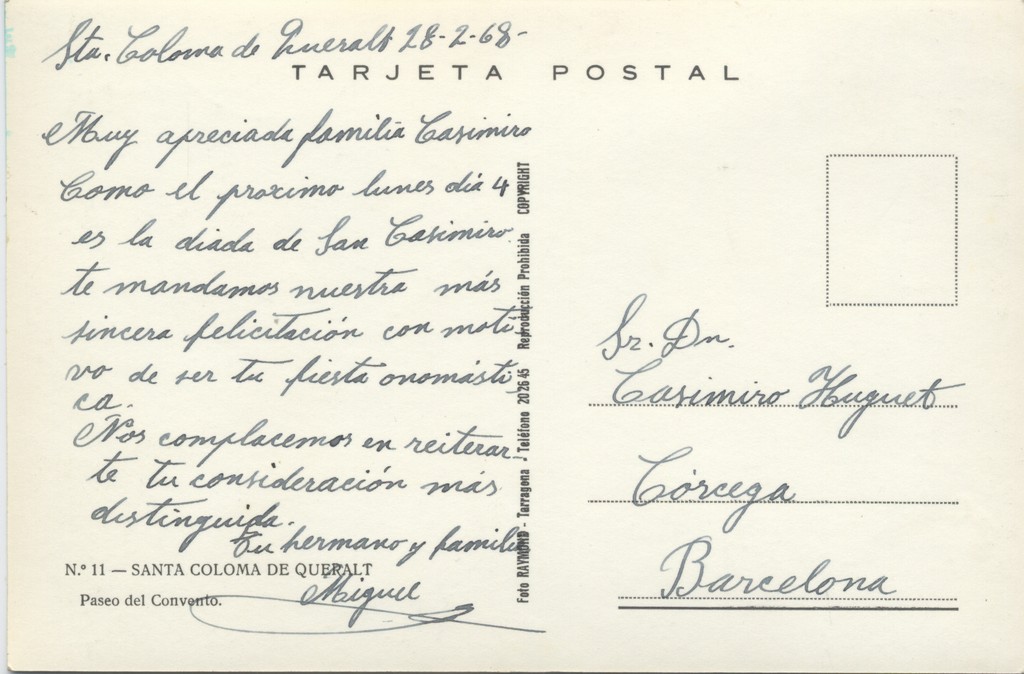 Sta. Coloma de Queralt 28-2-68-
TARJETA POSTAL
Muy apreciada familia Casimiro
Como el proximo lunes dia 4
es la diada de San Casimiro
te mandamos nuestra más
sincera felicitación con moti
vo de ser tu fiesta onomásti
ca.
Nos complacemos en reiterar
te tu consideración más
distinguida.
Tu hermano y familia
Miguel
N.º 11 — SANTA COLOMA DE QUERALT
Paseo del Convento.
Foto RAYMOND - Tarragona - Teléfono 20 26 45 Reproducción Prohibida COPYRIGHT
Sr. Dn.
Casimiro Huguet
Córcega
Barcelona